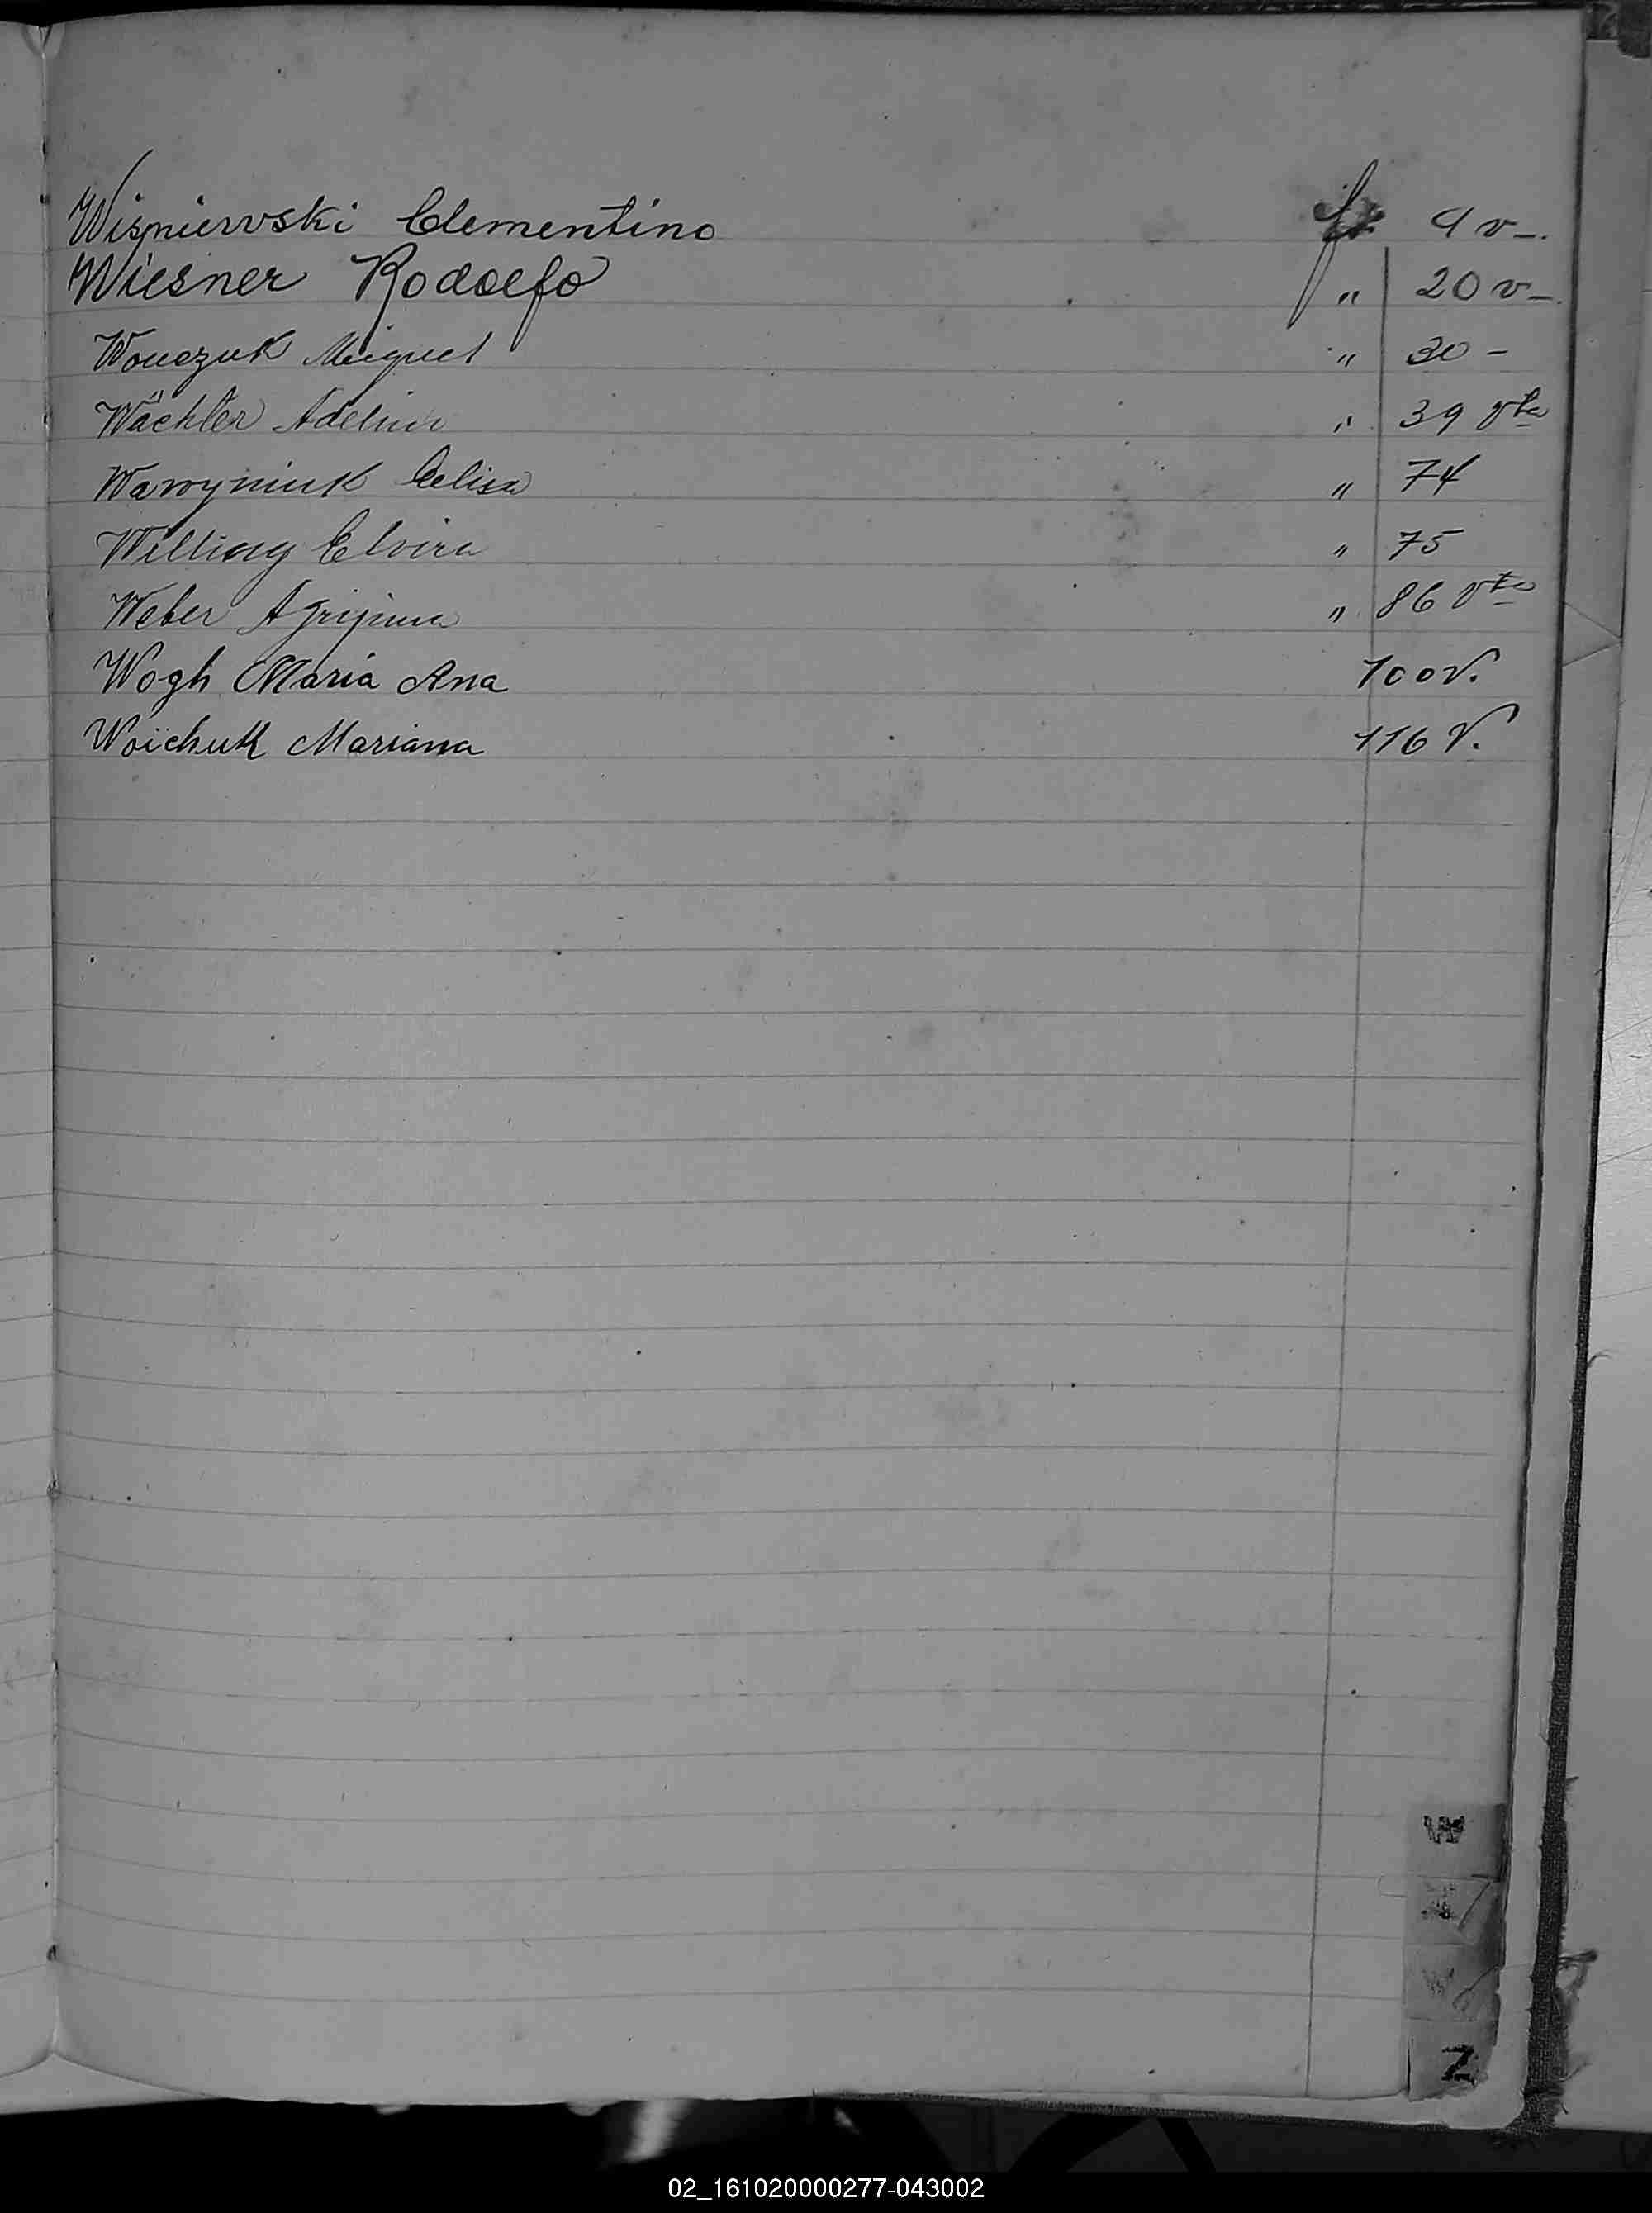 Wiśniewski Clementino fs 9 v-.
Wiesner Rodolfo " 20 v-.
Wouczuk Miguel " 30 -
Wächter Adelina " 39 vta
Wawryniuk Elisa " 74
Willing Elvira " 75
Weber Agripina " 86 Vta
Wogh Maria Ana 100 V.
Woichuk Mariana 116 V.
W
Z
02_161020000277-043002